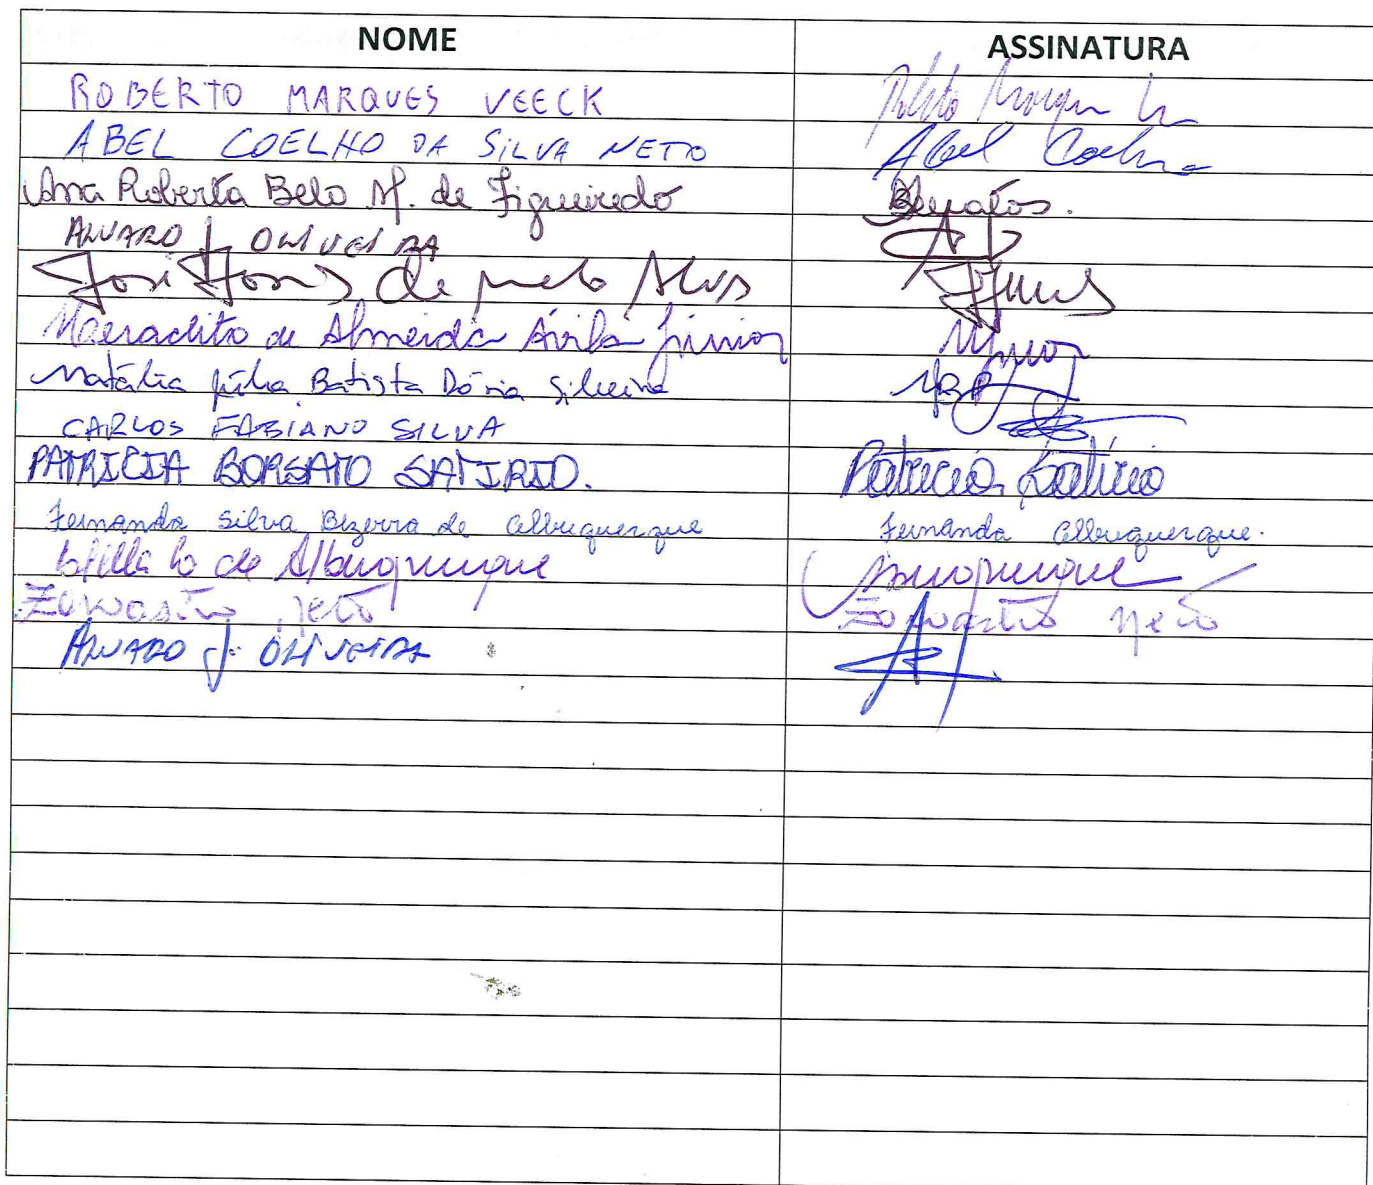 NOME ASSINATURA
ROBERTO MARQUES VEECK
ABEL COELHO DA SILVA NETO Abel Coelho
Ana Roberta Belo M. de Figueiredo
ALVARO J. OLIVEIRA
José de melo Alves
de Almeida Ávila Júnior Júnior
Natália Júlia Batista Dória Silveira
CARLOS FABIANO SILVA
PATRICIA BORSATO SATIRIO. Patricia Satirio
Fernanda Silva Bezerra de Albuquerque Fernanda Albuquerque.
de Albuquerque Albuquerque
Zoroastro Neto Zoroastro Neto
ALVARO J. OLIVEIRA